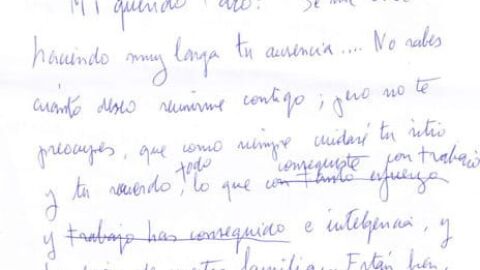 Mi querido Paco: Se me está
haciendo muy larga tu ausencia.... No sabes
cuánto deseo reunirme contigo; pero no te
preocupes, que como siempre cuidaré tu sitio
y tu recuerdo, todo lo que conseguiste con trabajo
con tanto esfuerzo
y trabajo has conseguido e inteligencia, y
familia. Están bien,